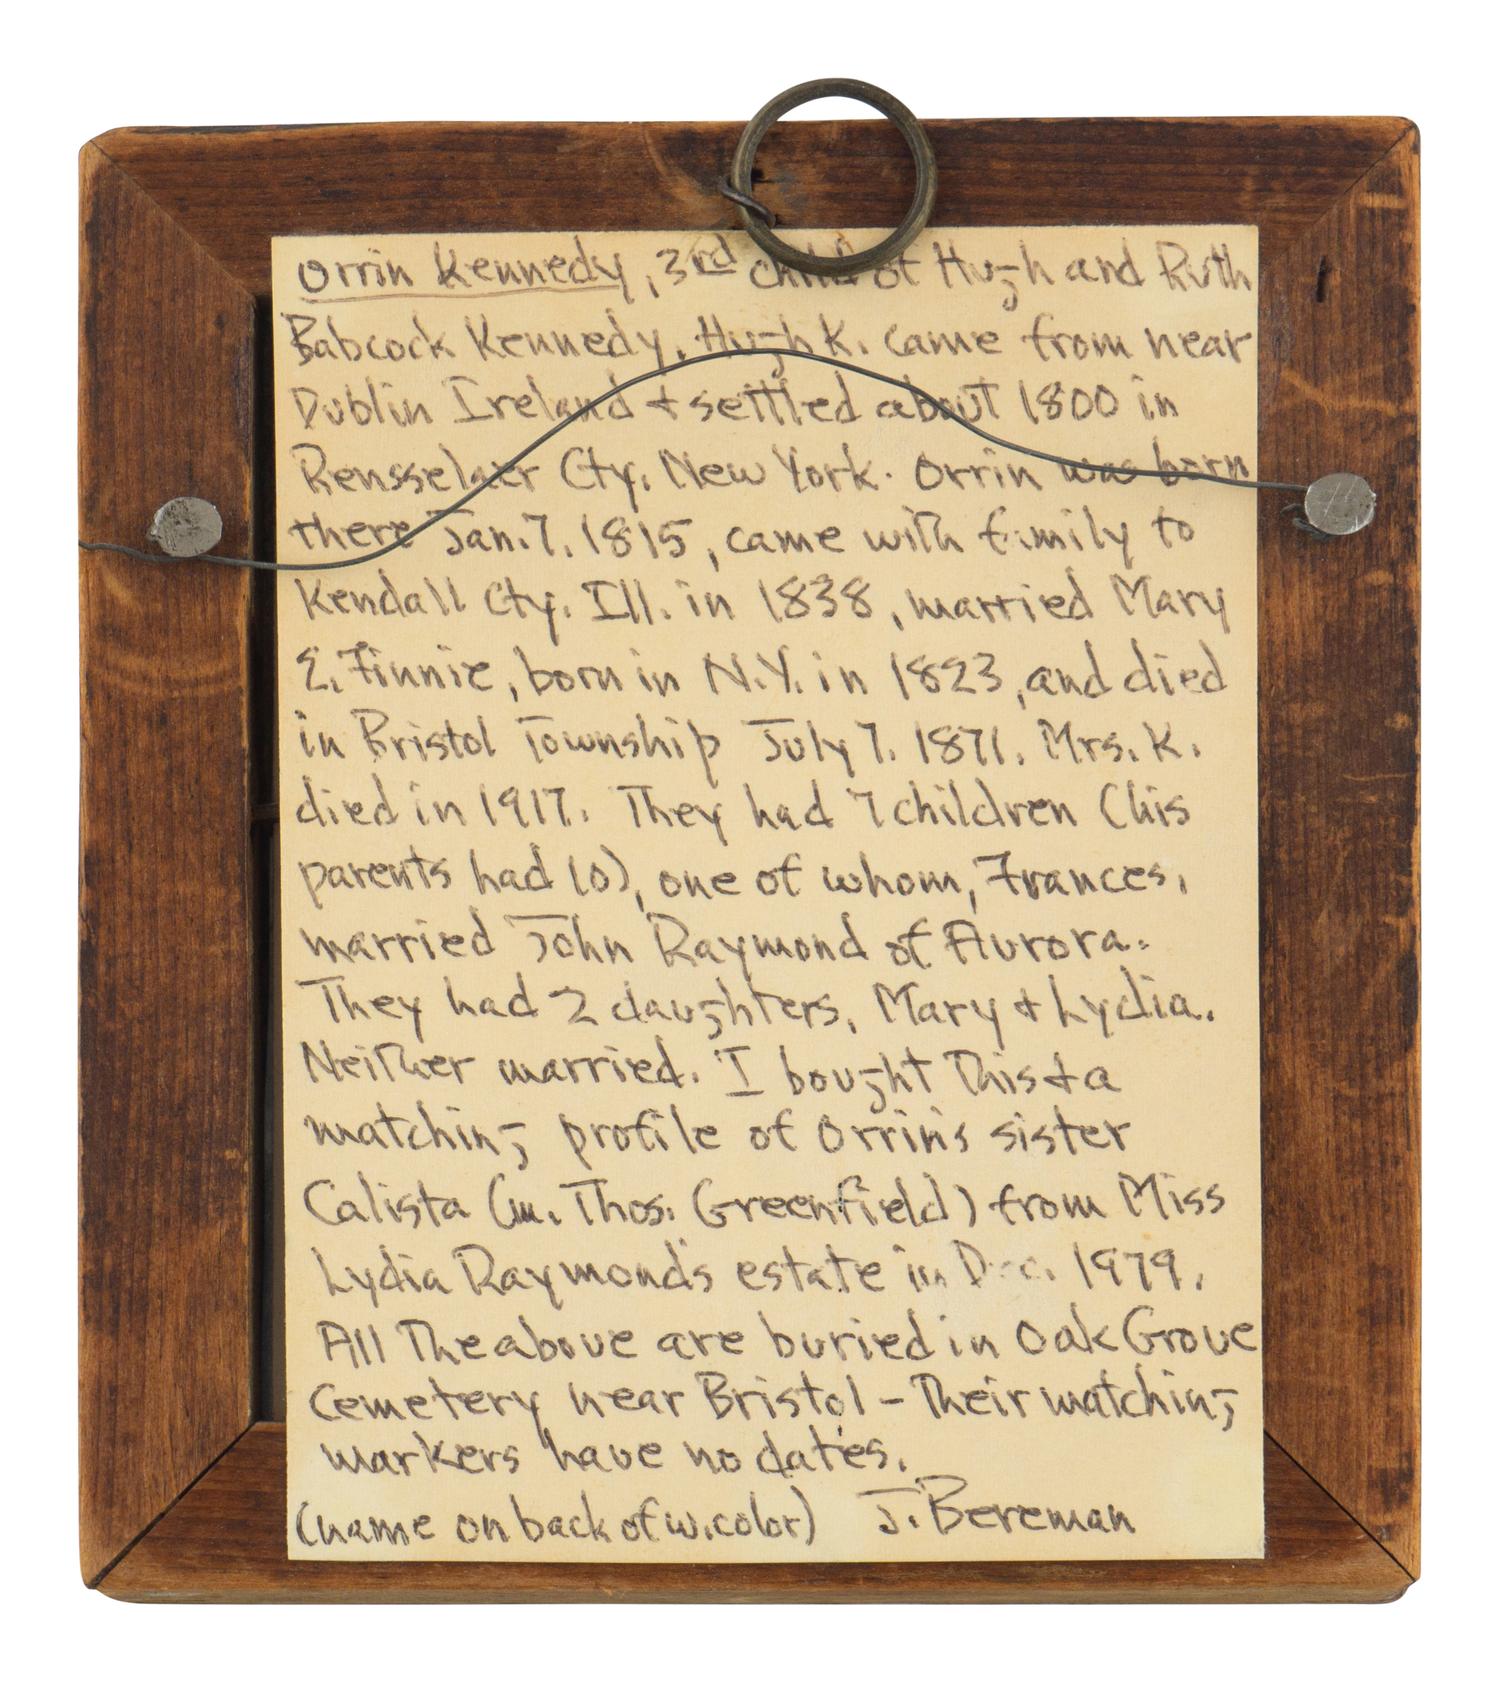 Orrin Kennedy, 3rd child of Hugh and Ruth
Babcock Kennedy. Hugh K. came from near
Dublin Ireland + settled about 1800 in
Rensselaer Cty. New York. Orrin was born
there Jan. 7. 1815, came with family to
Kendall Cty. Ill. in 1838, married Mary
E. Finnie, born in N.Y. in 1823, and died
in Bristol Township July 7. 1871. Mrs. K.
died in 1917. They had 7 children (his
parents had 10), one of whom, Frances,
married John Raymond of Aurora.
They had 2 daughters, Mary + Lydia.
Neither married. I bought this + a
matching profile of Orrin's sister
Calista (m. Thos. Greenfield) from Miss
Lydia Raymond's estate in Dec. 1979.
All the above are buried in Oak Grove
Cemetery near Bristol - Their matching
markers have no dates.
(name on back of w.color) J. Bereman